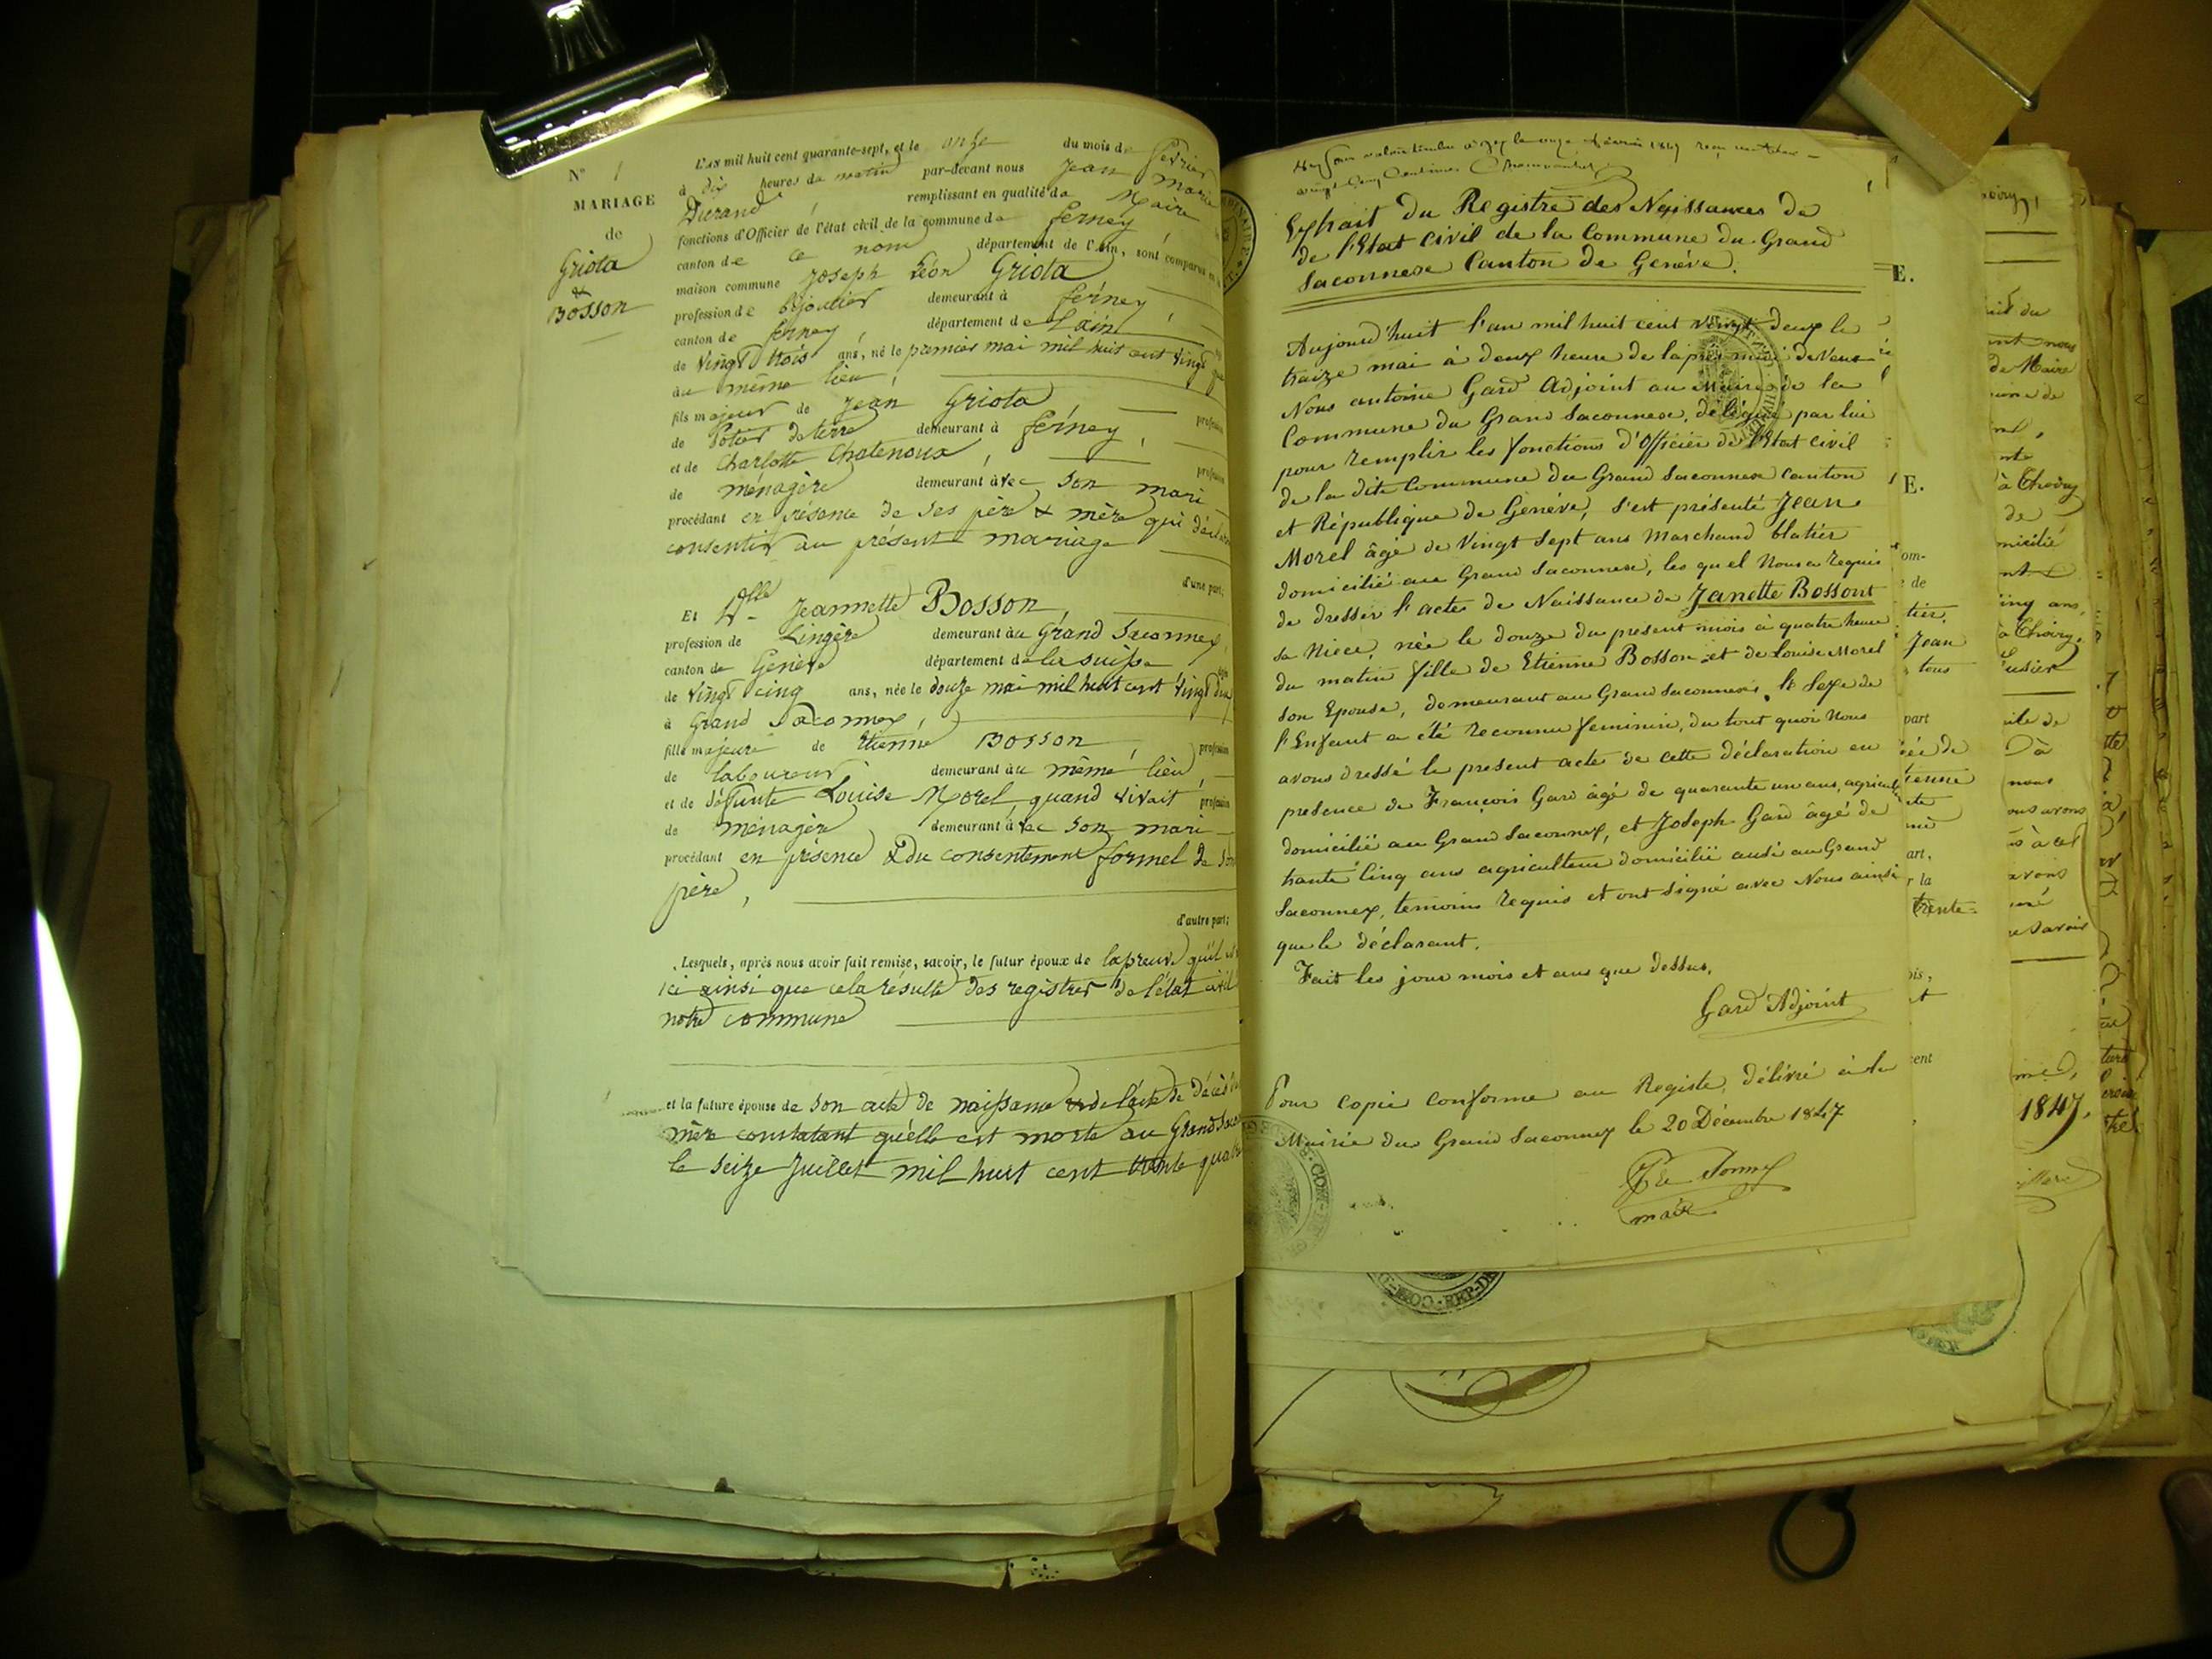 N° 1
MARIAGE
de
Griota
&
Bosson
L'AN mil huit cent quarante-sept, et le onze du mois de fevrier
à dix heures du matin par-devant nous Jean Marie
Durand, remplissant en qualité de Maire
fonctions d'Officier de l'état civil de la commune de ferney,
canton de ce nom département de l'Ain, sont comparus en
maison commune Joseph Léon Griota
profession de bijoutier demeurant à ferney,
canton de ferney, département de L'ain
de Vingt trois ans, né le premier mai mil huit cent vingt
au même lieu,
fils majeur de Jean Griota
de Potier de terre demeurant à férney, profession
et de Charlotte Chatenoux, profession
de ménagère demeurant avec son mari
procédant en présence de ses père & mère qui
consentir au présent mariage
d'une part;
Et Dlle Jeannette Bosson,
profession de Lingère demeurant au Grand Saconnex,
canton de Genève département de la suisse
de vingt cinq ans, née le douze mai mil huit cent vingt deux
à Grand Saconnex,
fille majeure de Etienne Bosson, profession
de laboureur demeurant au même lieu,
et de défunte Louise Morel, quand vivait profession
de ménagère demeurant avec son mari
procédant en présence & du consentement formel de son
père,
d'autre part;
Lesquels, après nous avoir fait remise, savoir, le futur époux de la preuve qu'il est
ainsi que cela résulte des registres de l'état civil
notre commune
et la future épouse de son acte de naissance & de l'acte de décès
mère constatant qu'elle est morte au Grand
le seize Juillet mil huit cent trente quatre
Extrait du Registre des Naissances de
l'Etat civil de la Commune du Grand
Saconnex Canton de Genève.
Aujourd'huit l'an mil huit cent vingt deux le
traize mai à deux heure de l'apré midi devent
Nous antoine Gard Adjoint au Maire de la
Commune du Grand Saconnex, délégué par lui
pour remplir les fonctions d'Officier de l'Etat civil
de la dite Commune du Grand Saconnex canton
et République de Genève, s'est présenté Jean
Morel âgé de Vingt sept ans Marchand blatier
domicilié au Grand Saconnex, les quel Nous a requis
de dresser l'acte de Naissance de Janette Bossont
sa Niece, née le douze du present mois à quatre heure
du matin fille de Etienne Bosson et de Louise Morel
son Epouse, demeurant au Grand Saconnex, le sexe de
l'Enfant a été reconnu feminin, du tout quoi Nous
avons dressé le present acte de cette déclaration en
presence de François Gard âgé de quarante un ans,
domicilié au Grand Saconnex, et Joseph Gard âgé de
trante cinq ans agriculteur domicilié ausi au Grand
Saconnex, temoins requis et ont signé avec Nous ainsi
que le déclarant.
Fait les jour mois et ans que dessus.
Gard Adjoint
Pour copie conforme au Registe, délivré à la
Mairie du Grand Saconnex le 20 Décembre 1847
maire
E.
E.
om-
de
tier
Jean
tous
part
art,
la
trente=
cent
de Maire
à Thoiry
de
ing ans,
à Thoiry,
nous
1847.